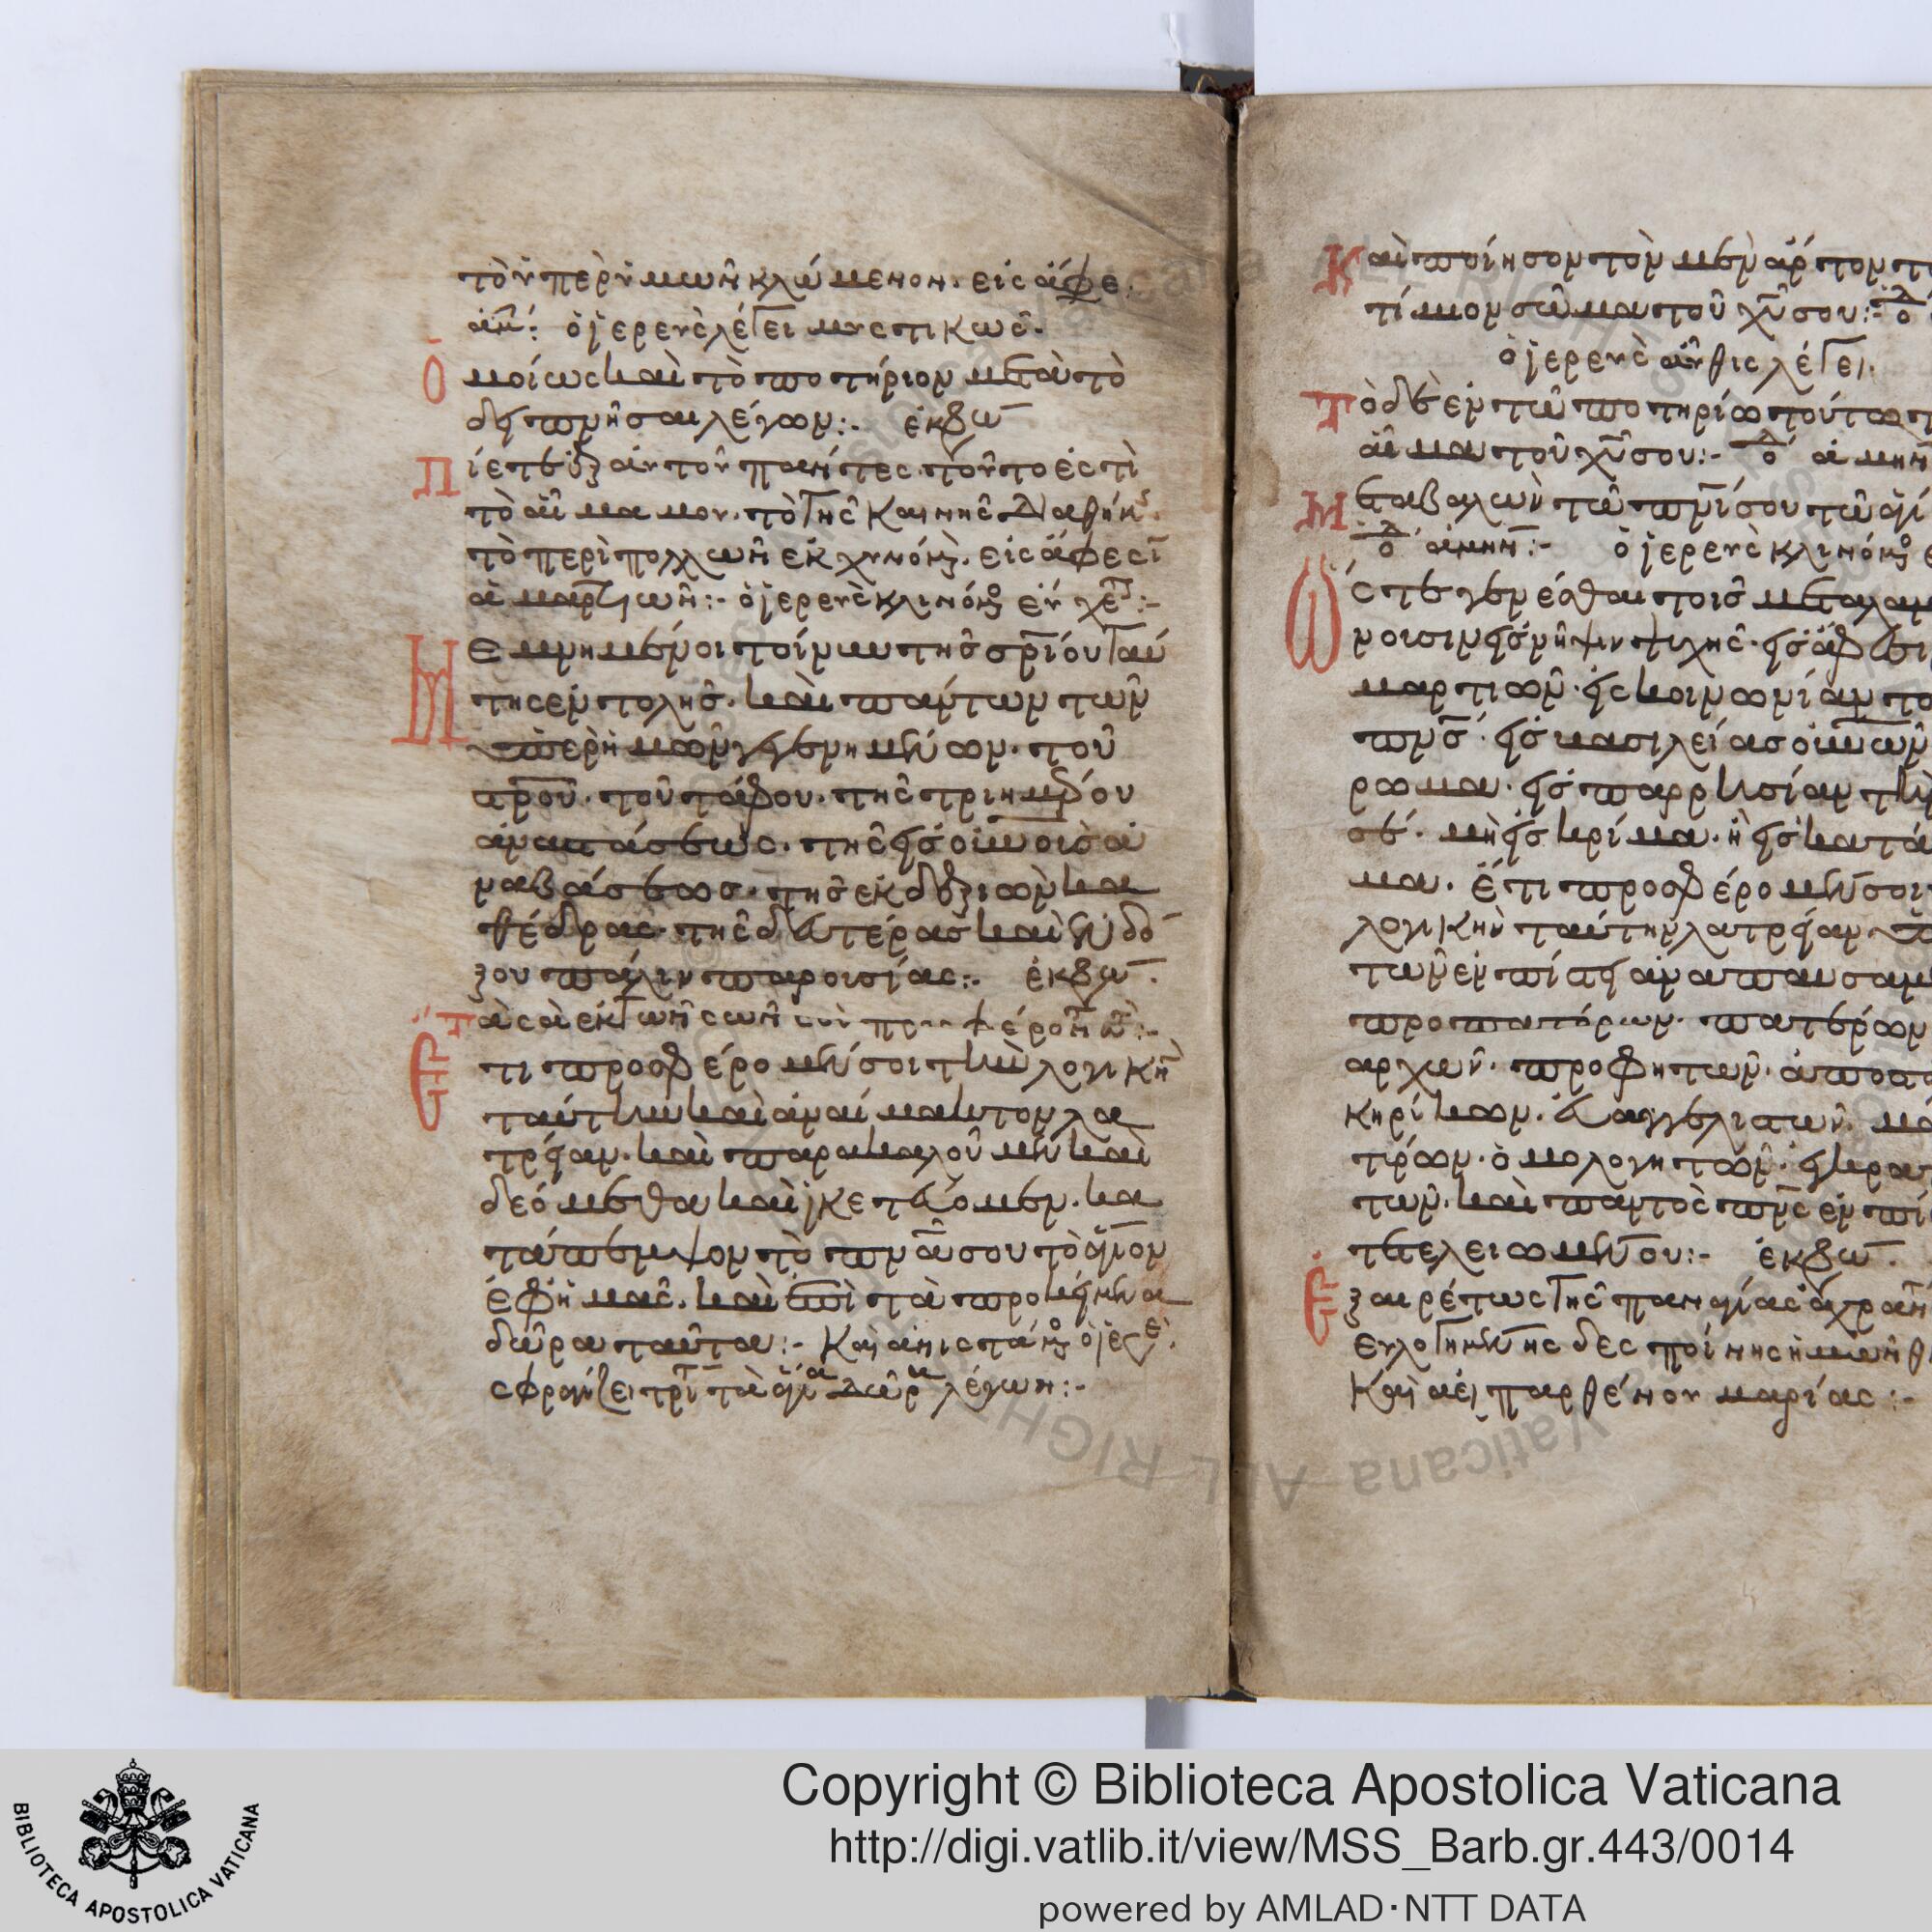 τὸ ὑπὲρ ὑμῶν κλώμενον. εἰς ἄφε.
ἁμ: ὁ ἱερεὺς λέγει μυστικῶς.
Ὁ
μοίως καὶ τὸ ποτήριον μετὰ τὸ
δειπνῆσαι λέγων:- ἐκφω
Π
ίετε ἐξ αὐτοῦ πάντες. τοῦτο ἐστὶ
τὸ αἷμα μου. τὸ τῆς καινῆς διαθήκης.
τὸ περὶ πολλῶν ἐκχυνόμ. εἰς ἄφεσι
ἁμαρτιῶν:- ὁ ἱερεὺς κλινόμ εὐχετ:-
Μ
εμνημένοι τοίνυν τῆς σρίου ταύ
της ἐντολῆς. καὶ πάντων τῶν
ὑπὲρ ἡμῶν γεγενημένων. τοῦ
σρου. τοῦ τάφου. τῆς τριημέρου
ἀναστάσεως. τῆς εἰς οὐνοὺς ἀ
ναβάσεως. τῆς ἐκ δεξιῶν κα
θέδρας. τῆς δευτέρας καὶ ἐνδό
ξου πάλιν παρουσίας:. ἐκφω.
Τ
ὰ σὰ ἐκ τῶν σῶν
Ἔ
τι προσφέρομέν σοι τὴν λογικὴν
ταύτην καὶ ἀναίμακτον λα
τρείαν. καὶ παρακαλοῦμεν καὶ
δεόμεθα καὶ ἱκετεύομεν. κα
τάπεμψον τὸ πνᾶ σου τὸ ἅγιον
ἐφ ἡμᾶς. καὶ ἐπὶ τὰ προκείμενα
δῶρα ταῦτα:- Καὶ ἀνιστάμ ὁ ἱερεὺ.
σφραγίζει τρὶ τὰ ἅγια δῶρα λέγων:-
Κ
αὶ ποίησον τὸν μὲν ἄρτον τ
τίμιον σῶμα τοῦ χῦ σου:-
ὁ ἱερεὺς αὖθις λέγει.
Τ
ὸ δὲ ἐν τῶ ποτηρίω τούτω τ
αἷμα τοῦ χῦ σου:- ὁ λ ἀμήν
Μ
εταβαλὼν τῶ πνί σου τῶ ἁγί
ὁ λ ἀμήν:- ὁ ἱερεὺς κλινόμ ε
Ὥ
στε γενέσθαι τοῖς μεταλαμ
νουσιν εἰς νῆψιν ψυχῆς. εἰς ἄφεσι
μαρτιῶν. εἰς κοινωνίαν το
πνς. εἰς βασιλείας οὐνῶν
ρωμα. εἰς παρρησίαν τὴν
σέ. μὴ εἰς κρίμα. ἢ εἰς κατά
μα. Ἔτι προσφέρομέν σοι
λογικὴν ταύτην λατρείαν ὑ
τῶν ἐν πίστει ἀναπαυσαμ
προπατόρων. πατέρων
αρχῶν. προφητῶν. ἀποσ
κηρύκων. εὐαγγελιστῶν. μα
τύρων. ὁμολογητῶν. ἐγκρα
τῶν. καὶ παντὸς πνς ἐν πί
τετελειωμένου:- ἐκφω.
Ἐ
ξαιρέτως τῆς παναγίας ἀχράν
εὐλογημένης δεσποίνης ἡμῶν θ
Καὶ ἀεὶ παρθένου μαρίας:-
BIBLIOTECA APOSTOLICA VATICANA
Copyright © Biblioteca Apostolica Vaticana
http://digi.vatlib.it/view/MSS_Barb.gr.443/0014
powered by AMLAD·NTT DATA